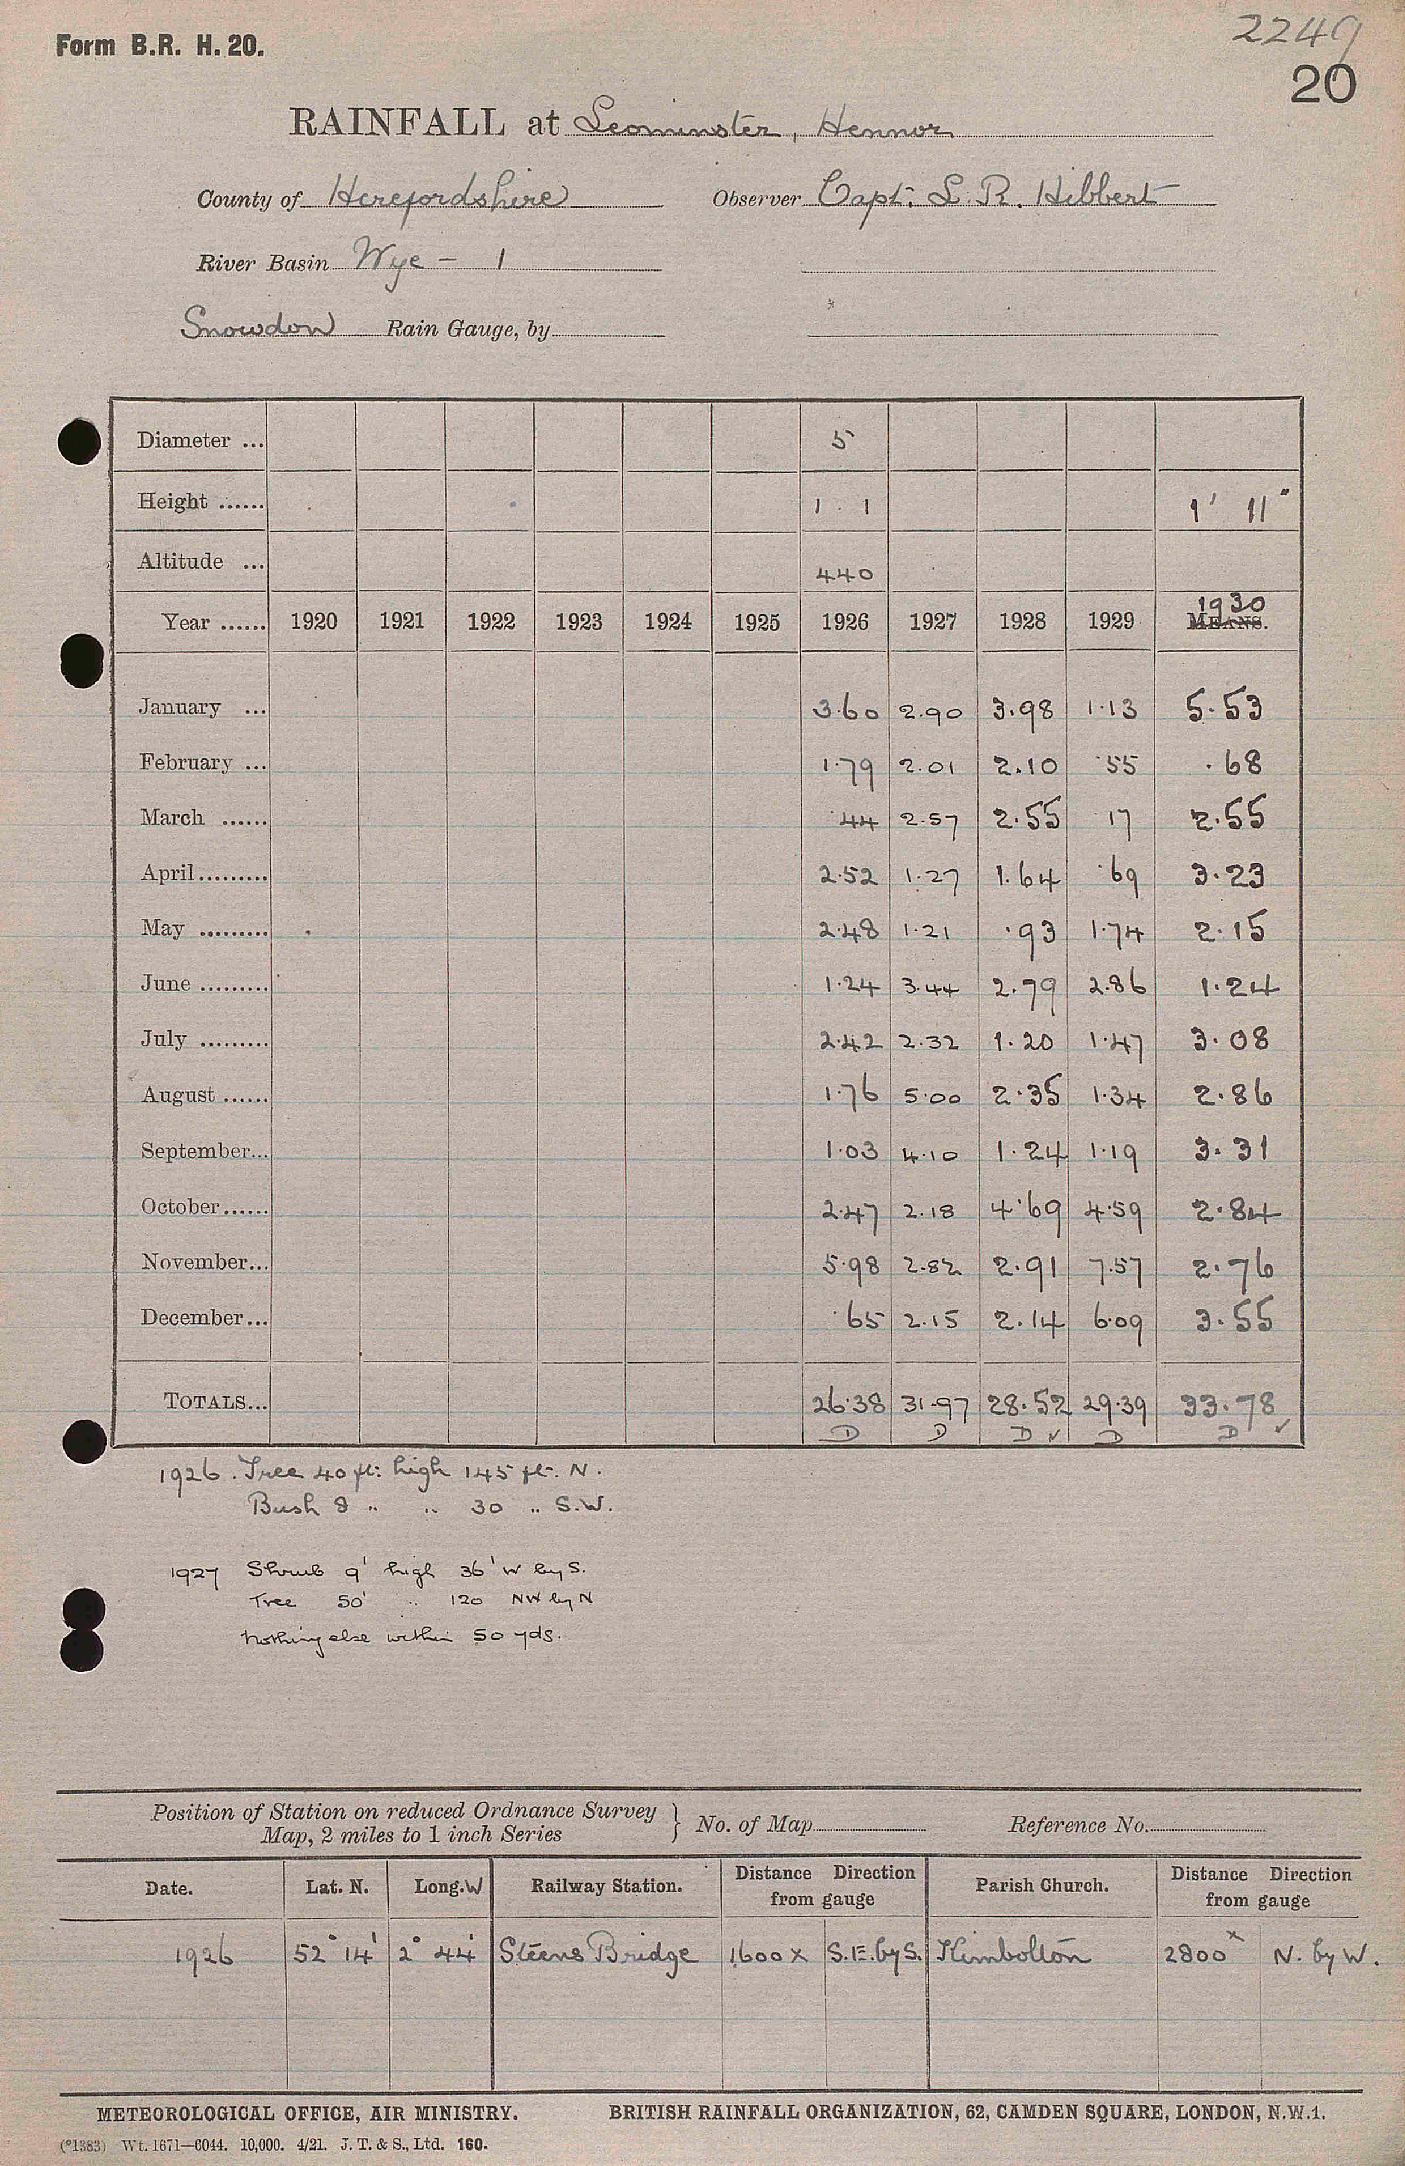 Form B.R. H. 20.
2249
20
RAINFALL at Leominster, Hennor
County of Herefordshire Observer Capt. L. R. Hibbert
River Basin Wye - 1
Snowdon Rain Gauge, by
Diameter ... 5
Height ...... 1 . 1 1' 11"
Altitude ... 440
Year ...... 1920 1921 1922 1923 1924 1925 1926 1927 1928 1929 1930 MEANS.
January ... 3.60 2.90 3.98 1.13 5.53
February ... 1.79 2.01 2.10 .55 .68
March ...... .44 2.57 2.55 .17 2.55
April......... 2.52 1.27 1.64 .69 3.23
May ......... 2.48 1.21 .93 1.74 2.15
June ......... 1.24 3.44 2.79 2.86 1.24
July ......... 2.42 2.32 1.20 1.47 3.08
August ...... 1.76 5.00 2.35 1.34 2.86
September... 1.03 4.10 1.24 1.19 3.31
October...... 2.47 2.18 4.69 4.59 2.84
November... 5.98 2.82 2.91 7.57 2.76
December... .65 2.15 2.14 6.09 3.55
TOTALS... 26.38 31.97 28.52 29.39 33.78
D D D ✓ D D ✓
1926. Tree 40 ft: high 145 ft. N.
Bush 8 " " 30 " S.W.
1927 Shrub 9' high 36' W by S.
Tree 50' " 120 NW by N
Nothing else within 50 yds.
Position of Station on reduced Ordnance Survey
Map, 2 miles to 1 inch Series } No. of Map Reference No.
Date. Lat. N. Long. W Railway Station. Distance Direction from gauge Parish Church. Distance Direction from gauge
1926 52° 14' 2° 44' Steens Bridge 1600 x S.E. by S. Kimbolton 2800 x N. by W.
METEOROLOGICAL OFFICE, AIR MINISTRY. BRITISH RAINFALL ORGANIZATION, 62, CAMDEN SQUARE, LONDON, N.W.1.
(*1383) Wt. 1671—6044. 10,000. 4/21. J. T. & S., Ltd. 160.